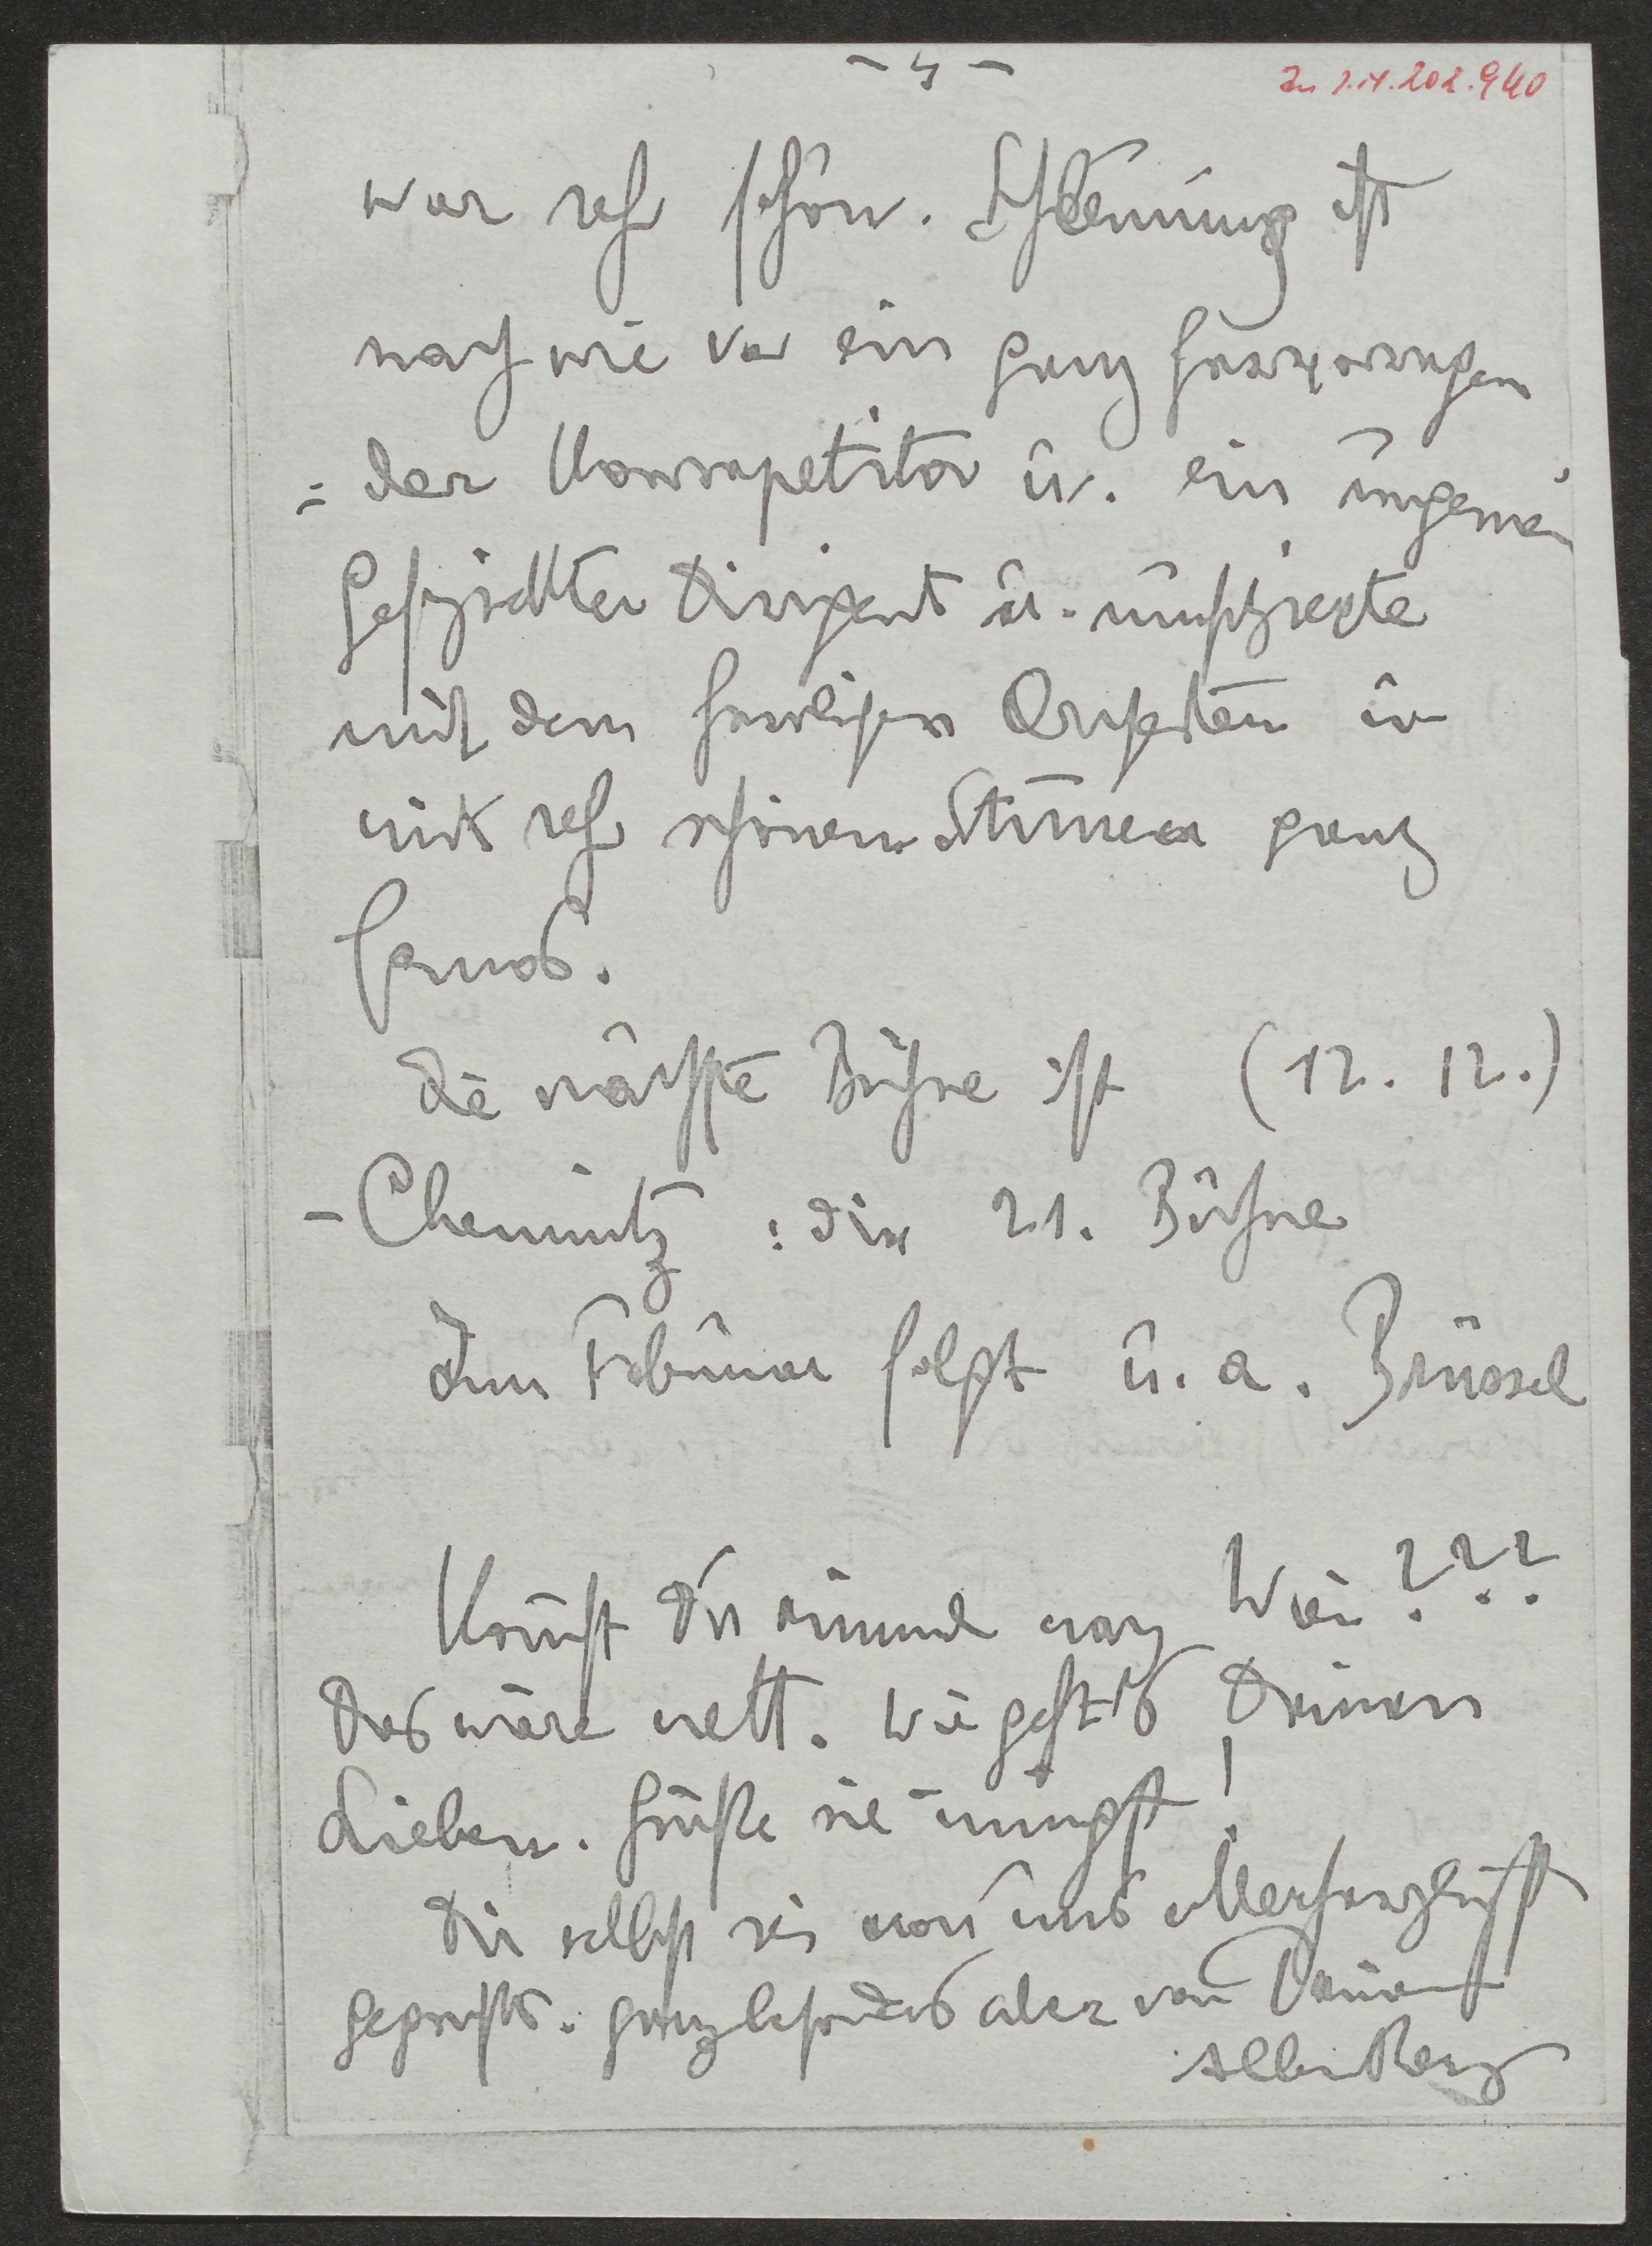 - 4 -
Zu I.N. 202.940
war sehr schön. Schlemming ist
nach wie vor ein ganz hervorragen
= der Korrepetitor u. ein ungemein
geschickter Dirigent u. musizierte
mit dem herrlichen Orchester u
mit sehr schönen Stimen ganz
famos.
Die nächste Bühne ist (12. 12.)
- Chemnitz: die 21. Bühne
Im Februar folgt u. a. Brüssel
Komst Du einmal nach Wien???
Das wäre nett. Wie geht's Deinen
Lieben. Grüße sie innigst!
Du selbst sei von uns allerherzlichst
gegrüßt. ganz besonders aber von Deinem
Alban Berg